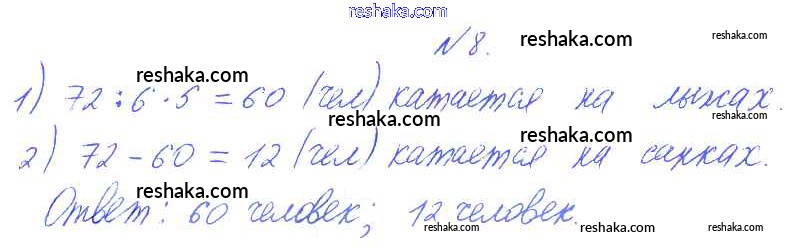 reshaka.com
№8. reshaka.com
reshaka.com reshaka.com
1) 72 : 6 · 5 = 60 (чел) катается на лыжах.
reshaka.com reshaka.com
2) 72 - 60 = 12 (чел) катается на санках.
reshaka.com reshaka.com reshaka.com
Ответ: 60 человек; 12 человек.